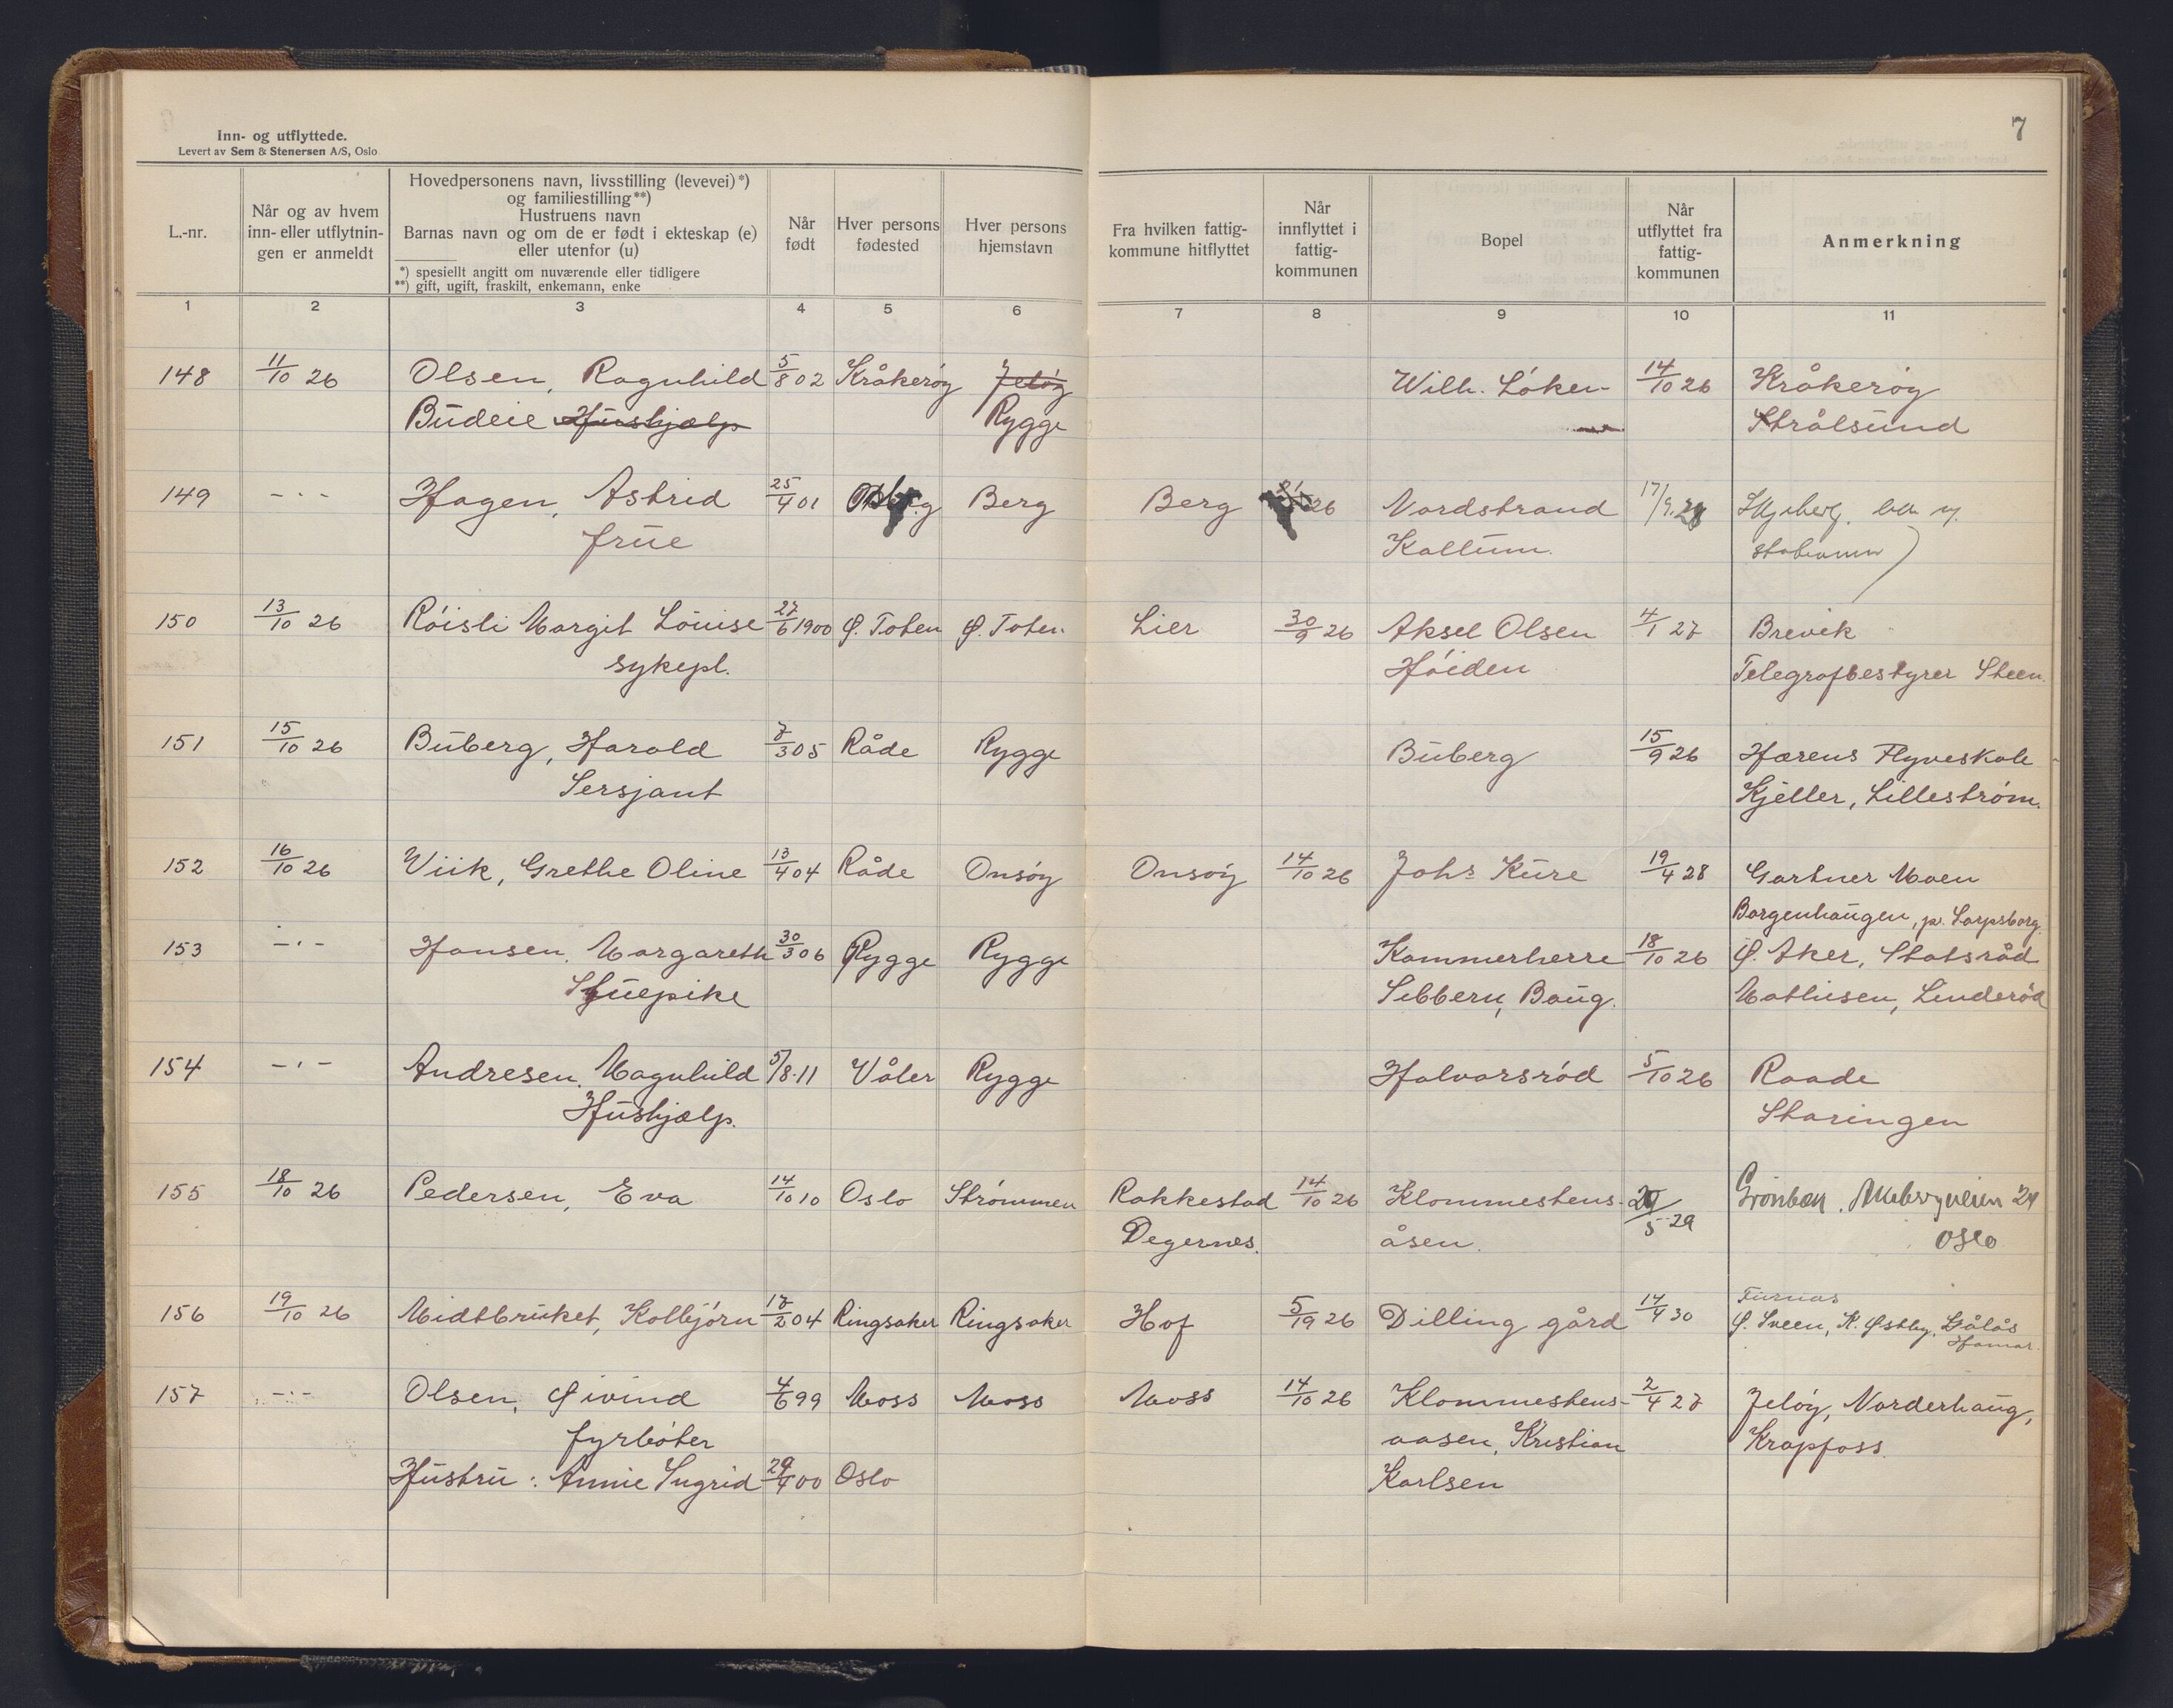 7
Inn- og utflyttede.
Levert av Sem & Stenersen A/S, Oslo
L.-nr.
Når og av hvem
inn- eller utflytnin-
gen er anmeldt
Hovedpersonens navn, livsstilling (levevei)*)
og familiestilling**)
Hustruens navn
Barnas navn og om de er født i ekteskap (e)
eller utenfor (u)
*) spesiellt angitt om nuværende eller tidligere
**) gift, ugift, fraskilt, enkemann, enke
Når
født
Hver persons
fødested
Hver persons
hjemstavn
Fra hvilken fattig-
kommune hitflyttet
Når
innflyttet i
fattig-
kommunen
Bopel
Når
utflyttet fra
fattig-
kommunen
Anmerkning
1 2 3 4 5 6 7 8 9 10 11
148 11/10 26 Olsen, Ragnhild 5/8 02 Kråkerøy Jeløy Wilh. Løken 14/10 26 Kråkerøy
Budeie Hushjælp Rygge Strålsund
149 -"- Hagen, Astrid 25/4 01 Berg Berg 26 Nordstrand 17/9 28 Skjeberg
frue Kallum.
150 13/10 26 Røisli Margit Louise 27/6 1900 Ø. Toten Ø. Toten Lier 30/9 26 Aksel Olsen 4/1 27 Brevik
sykepl. Høiden Telegrafbestyrer Steen.
151 15/10 26 Buberg, Harald 7/3 05 Råde Rygge Buberg 15/9 26 Hærens Flyveskole
Sersjant Kjeller, Lillestrøm.
152 16/10 26 Viik, Grethe Oline 13/4 04 Råde Onsøy Onsøy 14/10 26 Johs Kure 19/4 28 Gartner Moen
Borgenhaugen, pr. Sarpsborg.
153 -"- Hansen, Margareth 30/3 06 Rygge Rygge Kammerherre 18/10 26 Ø. Aker, Statsråd
Stuepike Sibbern, Baug. Mathisen, Linderød
154 -"- Andresen, Magnhild 5/8-11 Våler Rygge Halvorsrød 5/10 26 Raade
Hushjælp. Staringen
155 18/10 26 Pedersen, Eva 14/10 10 Oslo Strømmen Rakkestad 14/10 26 Klommestens- 5-29
Degernes. åsen. Oslo
156 19/10 26 Midtbruket, Kolbjørn 17/2 04 Ringsaker Ringsaker Hof 5/19 26 Dilling gård 14/4 30 Furnes
Ø. Sveen, K. Østby, Gålås
Hamar.
157 -"- Olsen, Øivind 4/6 99 Moss Moss Moss 14/10 26 Klommestens- 2/4 27 Jeløy, Norderhaug,
fyrbøter aasen, Kristian Krapfoss.
Hustru: Annie Ingrid 29/4 00 Oslo Karlsen